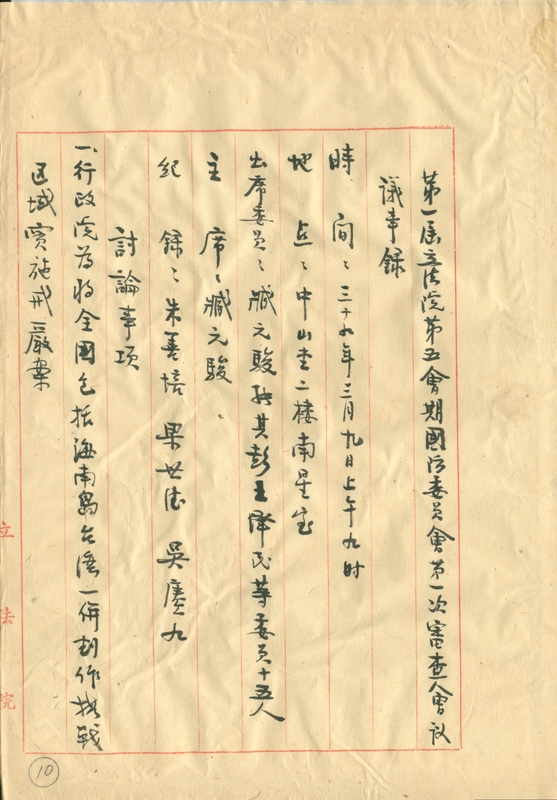 第一屆立法院第五會期國防委員會第一次審查會議
議事錄
時 間：三十九年三月九日上午九时
地 点：中山堂二樓南星室
出席委員：臧元駿 王澤民等委員十五人
主 席：臧元駿
紀 錄：朱善培 梁世德 吳賡九
討論事項
一、行政院為將全國包括海南島台湾一併劃作接戰
区域實施戒嚴案
立法院
10